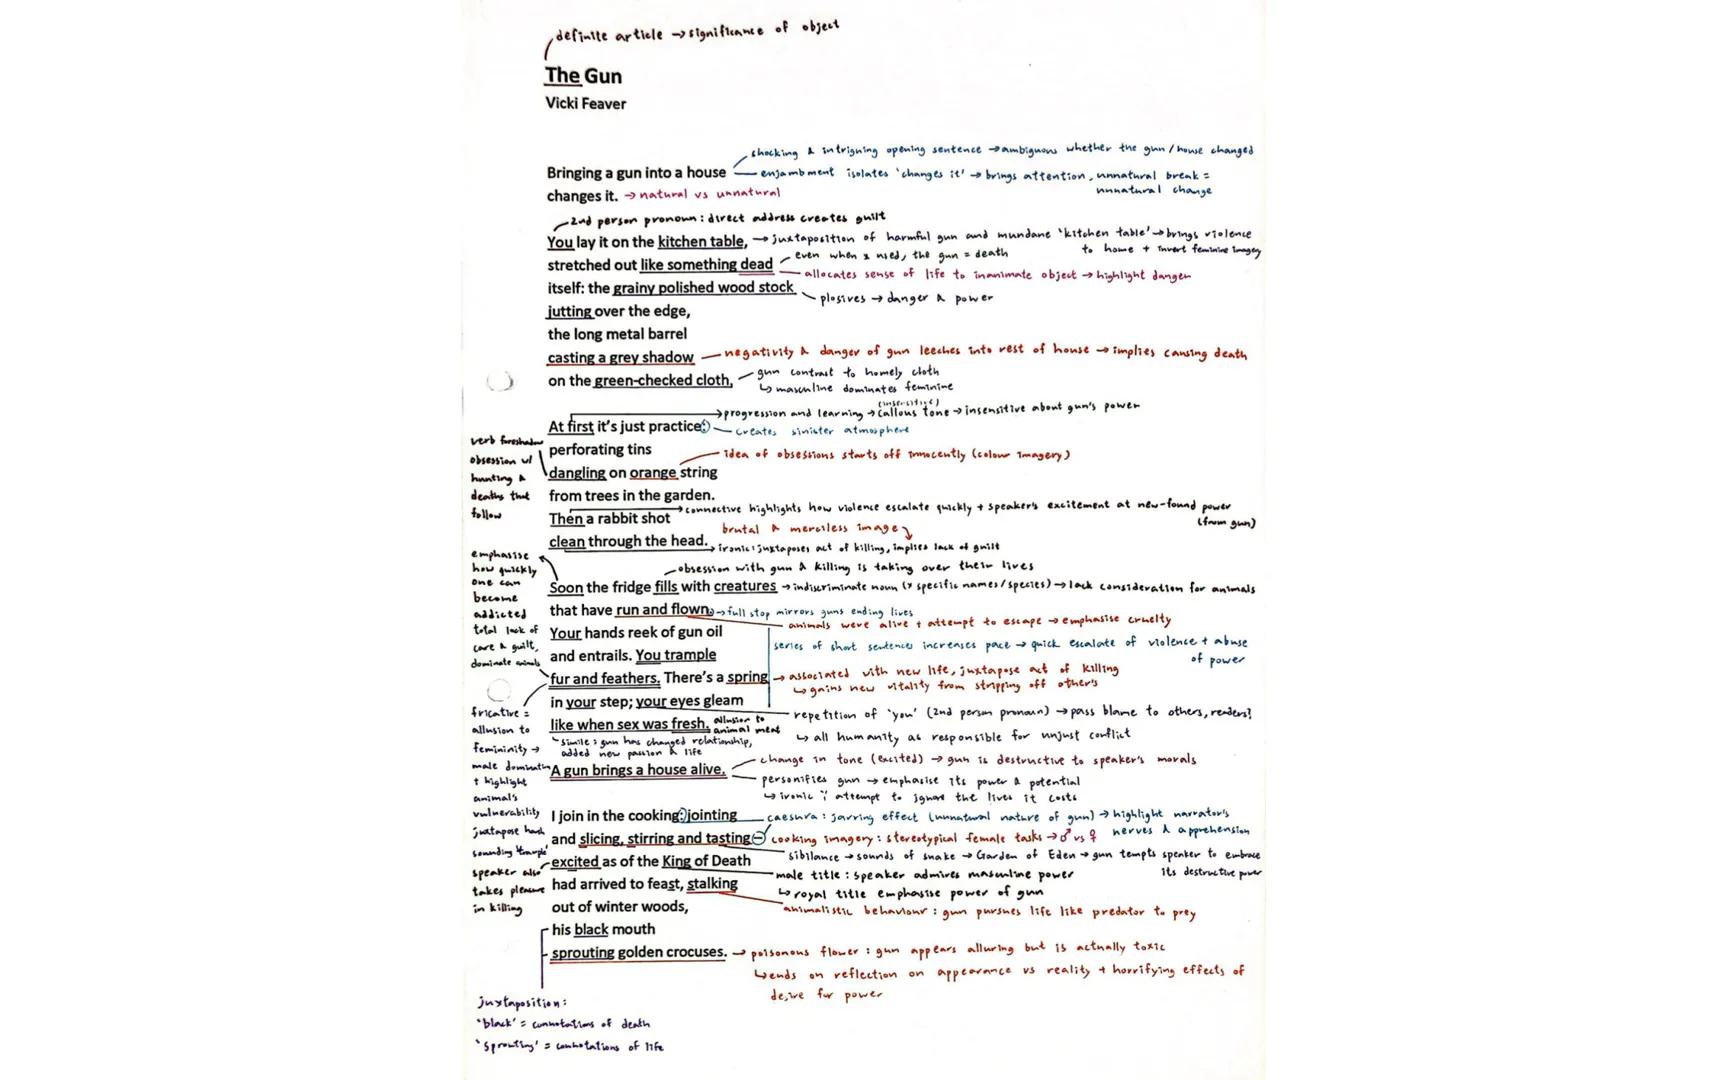 definite article → significance of object
The Gun
Vicki Feaver
shocking & intriguing opening sentence → ambiguous whether the gun / house changed
Bringing a gun into a house
enjambment isolates 'changes it' → brings attention, unnatural break =
unnatural change
changes it. → natural vs unnatural
2nd person pronoun : direct address creates guilt
You lay it on the kitchen table, → juxtaposition of harmful gun and mundane 'kitchen table' → brings violence
to home + invert feminine imagery
even when x used, the gun = death
stretched out like something dead
allocates sense of life to inanimate object → highlight danger
itself: the grainy polished wood stock
plosives → danger & power
jutting over the edge,
the long metal barrel
casting a grey shadow — negativity & danger of gun leeches into rest of house → implies causing death
gun contrast to homely cloth
on the green-checked cloth,
↳ masculine dominates feminine
(insensitive)
progression and learning → callous tone → insensitive about gun's power
At first it's just practice:
creates sinister atmosphere
verb foreshadow
obsession w/
hunting &
deaths that
follow
perforating tins
idea of obsessions starts off innocently (colour imagery)
dangling on orange string
from trees in the garden.
connective highlights how violence escalate quickly + speaker's excitement at new-found power
(from gun)
Then a rabbit shot
brutal & merciless image
clean through the head.
ironic : juxtaposes act of killing, implies lack of guilt
emphasise
how quickly
one can
become
addicted
obsession with gun & killing is taking over their lives
Soon the fridge fills with creatures → indiscriminate noun (x specific names/species) → lack consideration for animals
that have run and flown. → full stop mirrors guns ending lives
animals were alive + attempt to escape → emphasise cruelty
total lack of
care & guilt,
dominate animals
Your hands reek of gun oil
series of short sentences increases pace → quick escalate of violence + abuse
of power
and entrails. You trample
fur and feathers. There's a spring → associated with new life, juxtapose act of killing
↳ gains new vitality from stripping off other's
in your step; your eyes gleam
repetition of 'you' (2nd person pronoun) → pass blame to others, readers?
↳ all humanity as responsible for unjust conflict
like when sex was fresh. allusion to
animal meat
simile : gun has changed relationship,
added new passion & life
fricative =
allusion to
femininity →
male dominatn
+ highlight
animal's
vulnerability
juxtapose harsh
sounding 'trample'
change in tone (excited) → gun is destructive to speaker's morals
A gun brings a house alive.
personifies gun → emphasise its power & potential
↳ ironic ∵ attempt to ignore the lives it costs
I join in the cooking: jointing
caesura : jarring effect (unnatural nature of gun) → highlight narrator's
nerves & apprehension
and slicing, stirring and tasting–
cooking imagery : stereotypical female tasks → ♂ vs ♀
sibilance → sounds of snake → Garden of Eden → gun tempts speaker to embrace
its destructive power
excited as of the King of Death
male title : speaker admires masculine power
↳ royal title emphasise power of gun
speaker also
takes pleasure
in killing
had arrived to feast, stalking
animalistic behaviour : gun pursues life like predator to prey
out of winter woods,
his black mouth
sprouting golden crocuses. → poisonous flower : gun appears alluring but is actually toxic
↳ ends on reflection on appearance vs reality + horrifying effects of
desire for power
juxtaposition :
'black' = connotations of death
'sprouting' = connotations of life